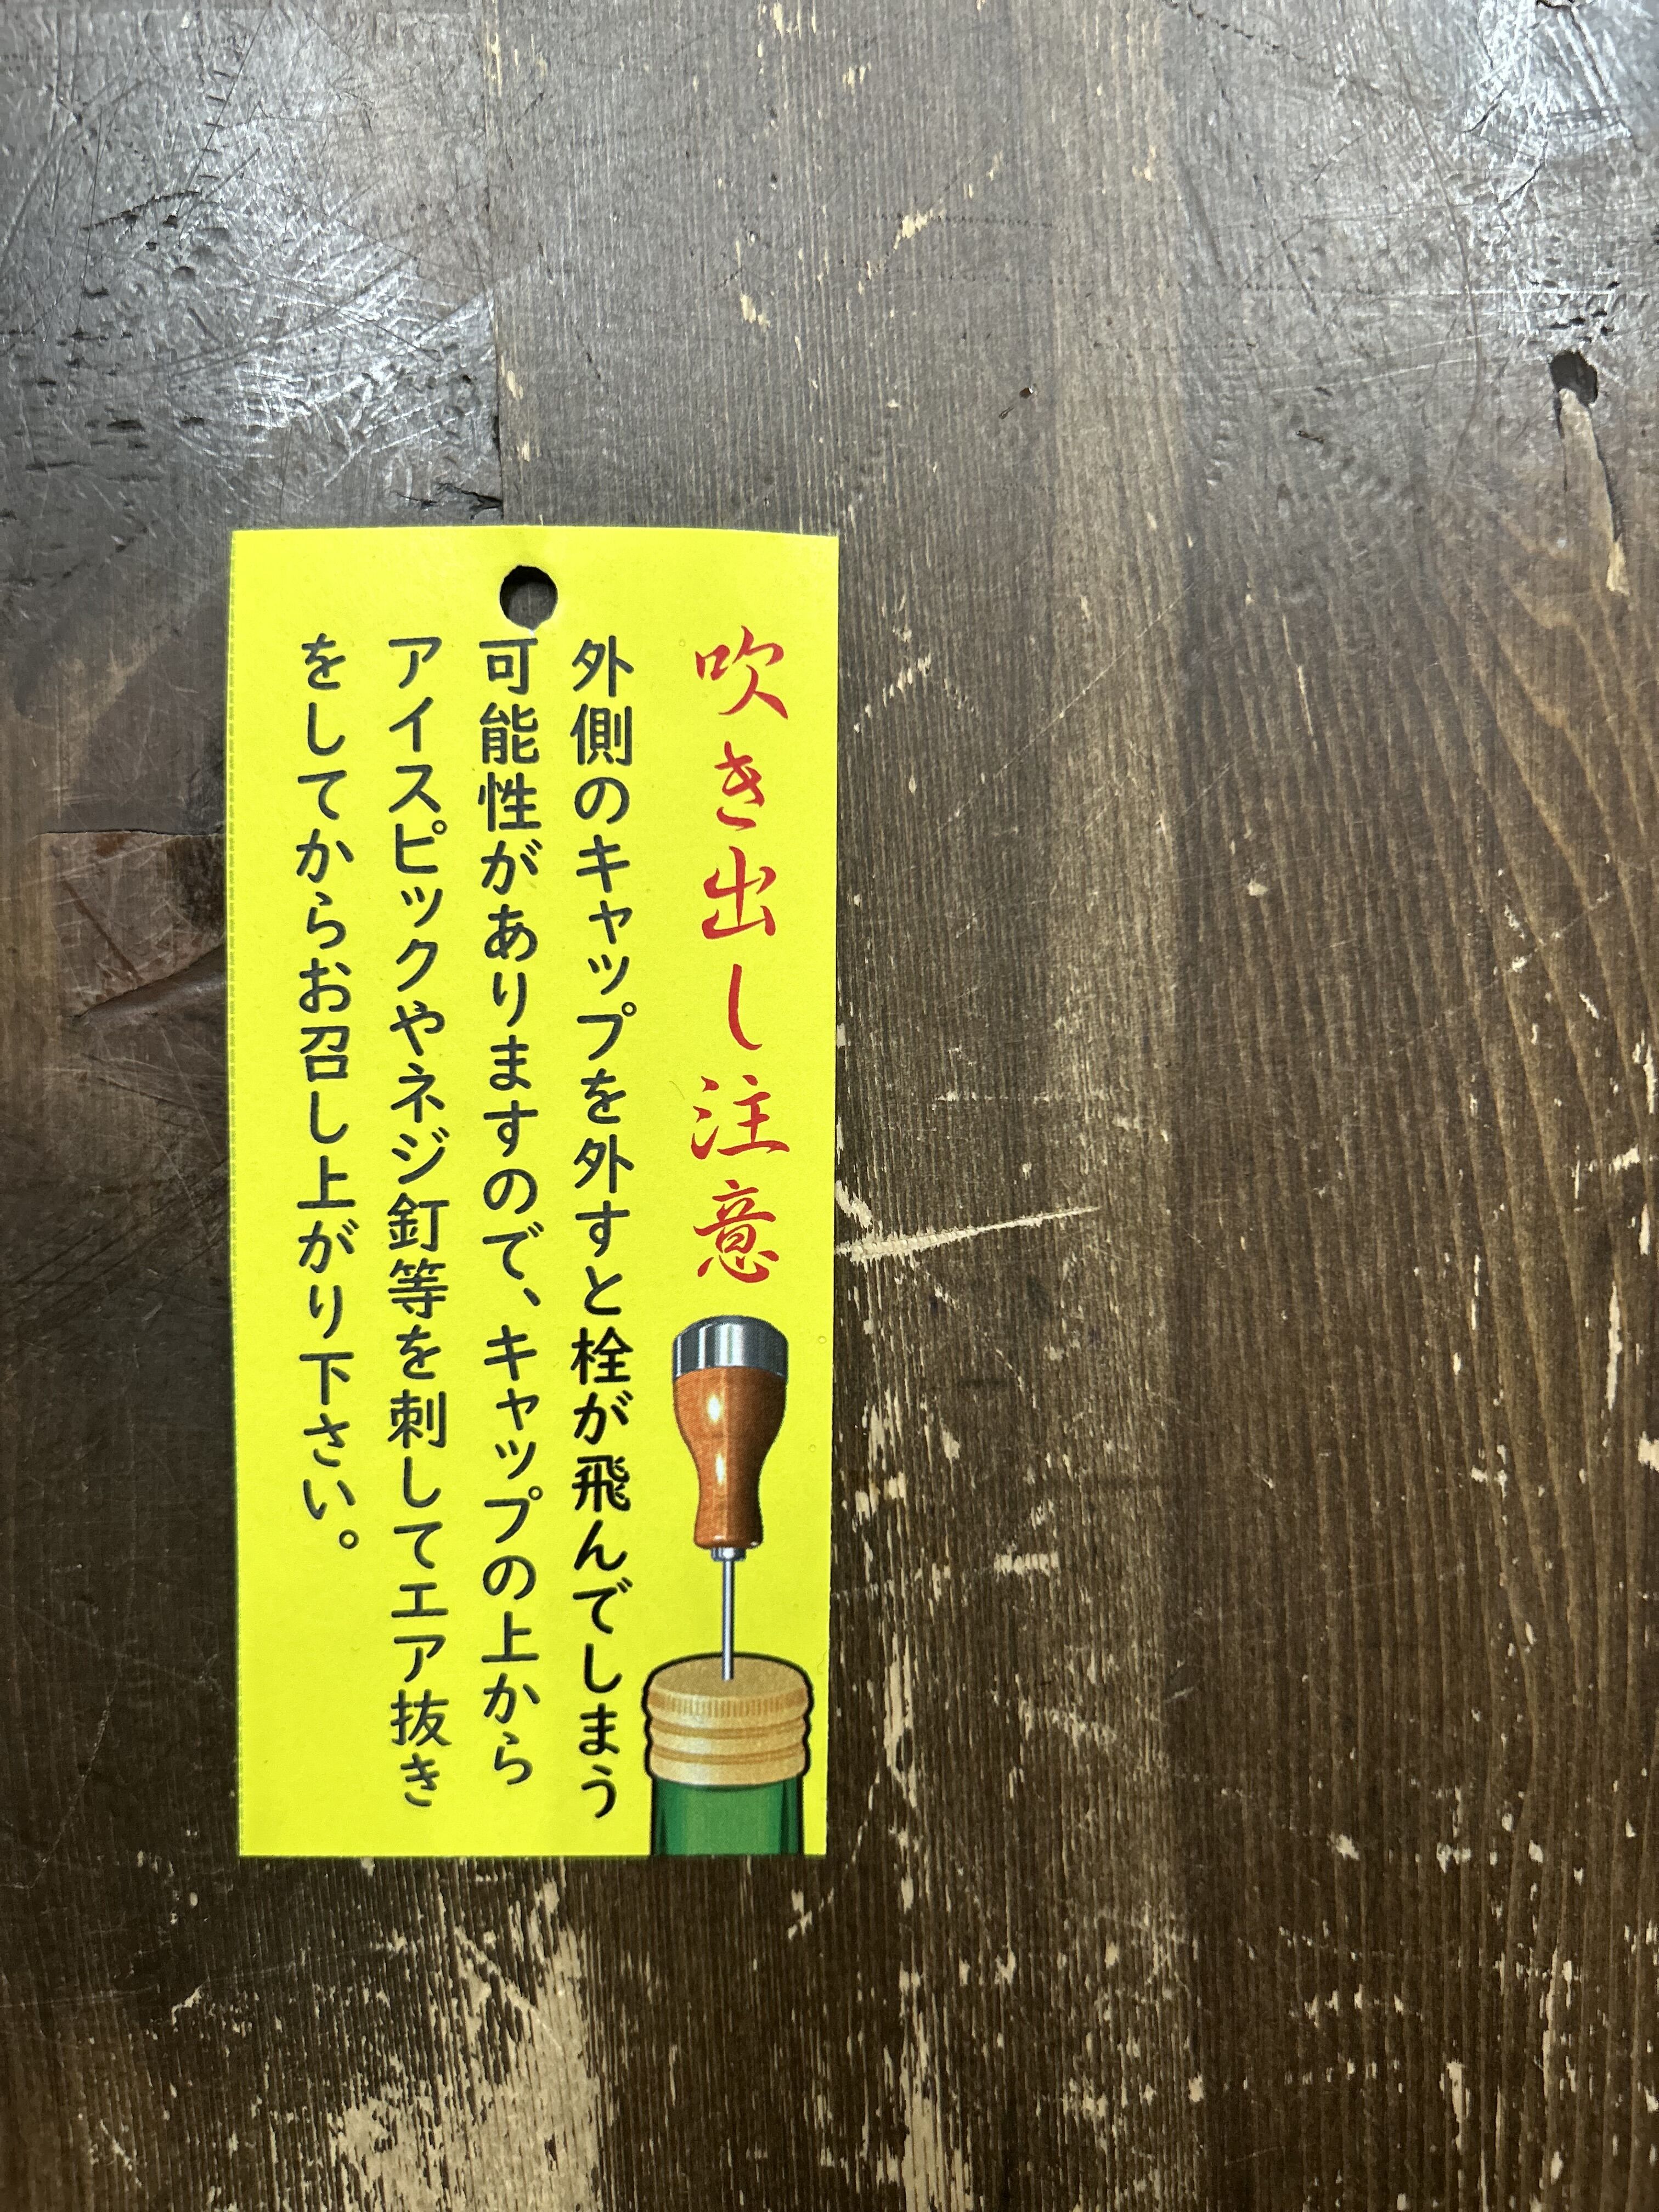 吹き出し注意
外側のキャップを外すと栓が飛んでしまう
可能性がありますので、キャップの上から
アイスピックやネジ釘等を刺してエア抜き
をしてからお召し上がり下さい。